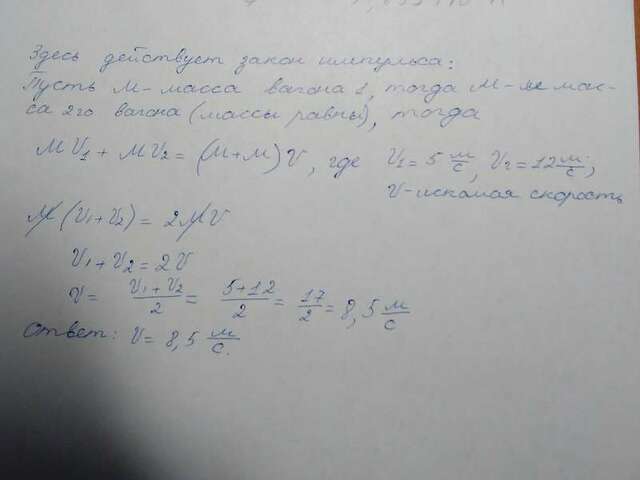 Здесь действует закон импульса:
Пусть М - масса вагона 1, тогда М - мас-
са 2го вагона (массы равны), тогда
MV₁ + MV₂ = (M+M)V, где V₁ = 5 м/с, V₂ = 12 м/с,
V - искомая скорость
M(V₁+V₂) = 2MV
V₁ + V₂ = 2V
V = (V₁+V₂)/2 = (5+12)/2 = 17/2 = 8,5 м/с
Ответ: V = 8,5 м/с.